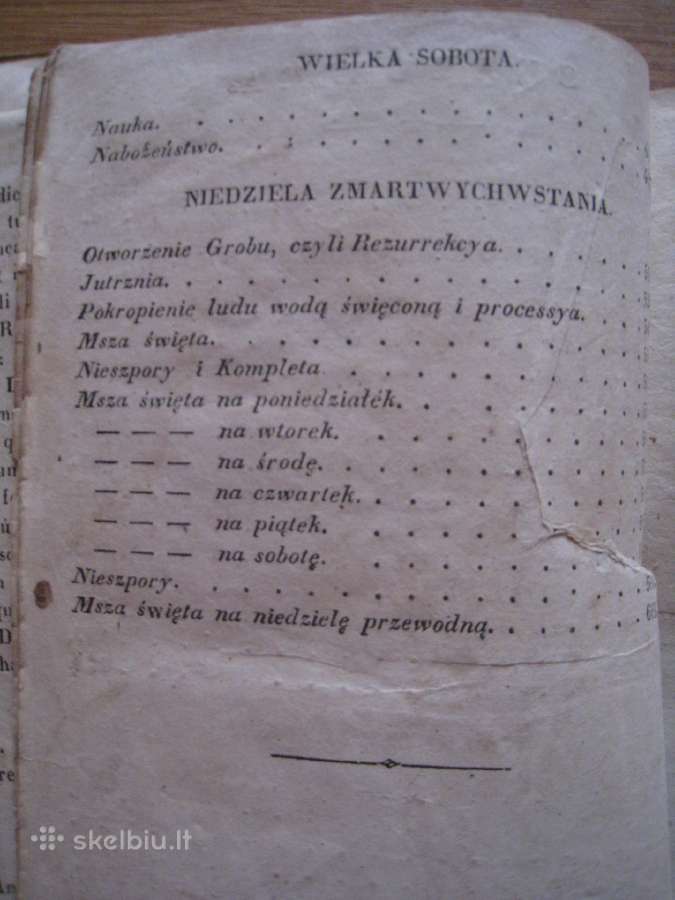 WIELKA SOBOTA.
Nauka. . . . . . . . . . . . . .
Nabożeństwo. . . . . . . . . . .
NIEDZIELA ZMARTWYCHWSTANIA.
Otworzenie Grobu, czyli Rezurrekcya. . . . . .
Jutrznia. . . . . . . . . . . . . .
Pokropienie ludu wodą święconą i processya. .
Msza święta. . . . . . . . . . . . .
Nieszpory i Kompleta . . . . . . . . . .
Msza święta na poniedziałék. . . . . . . .
— — — na wtorek. . . . . . . . . .
— — — na środę. . . . . . . . . .
— — — na czwartek. . . . . . . . .
— — — na piątek. . . . . . . . . .
— — — na sobotę. . . . . . . . . .
Nieszpory. . . . . . . . . . . . . .
Msza święta na niedzielę przewodną. . . . . .
skelbiu.lt